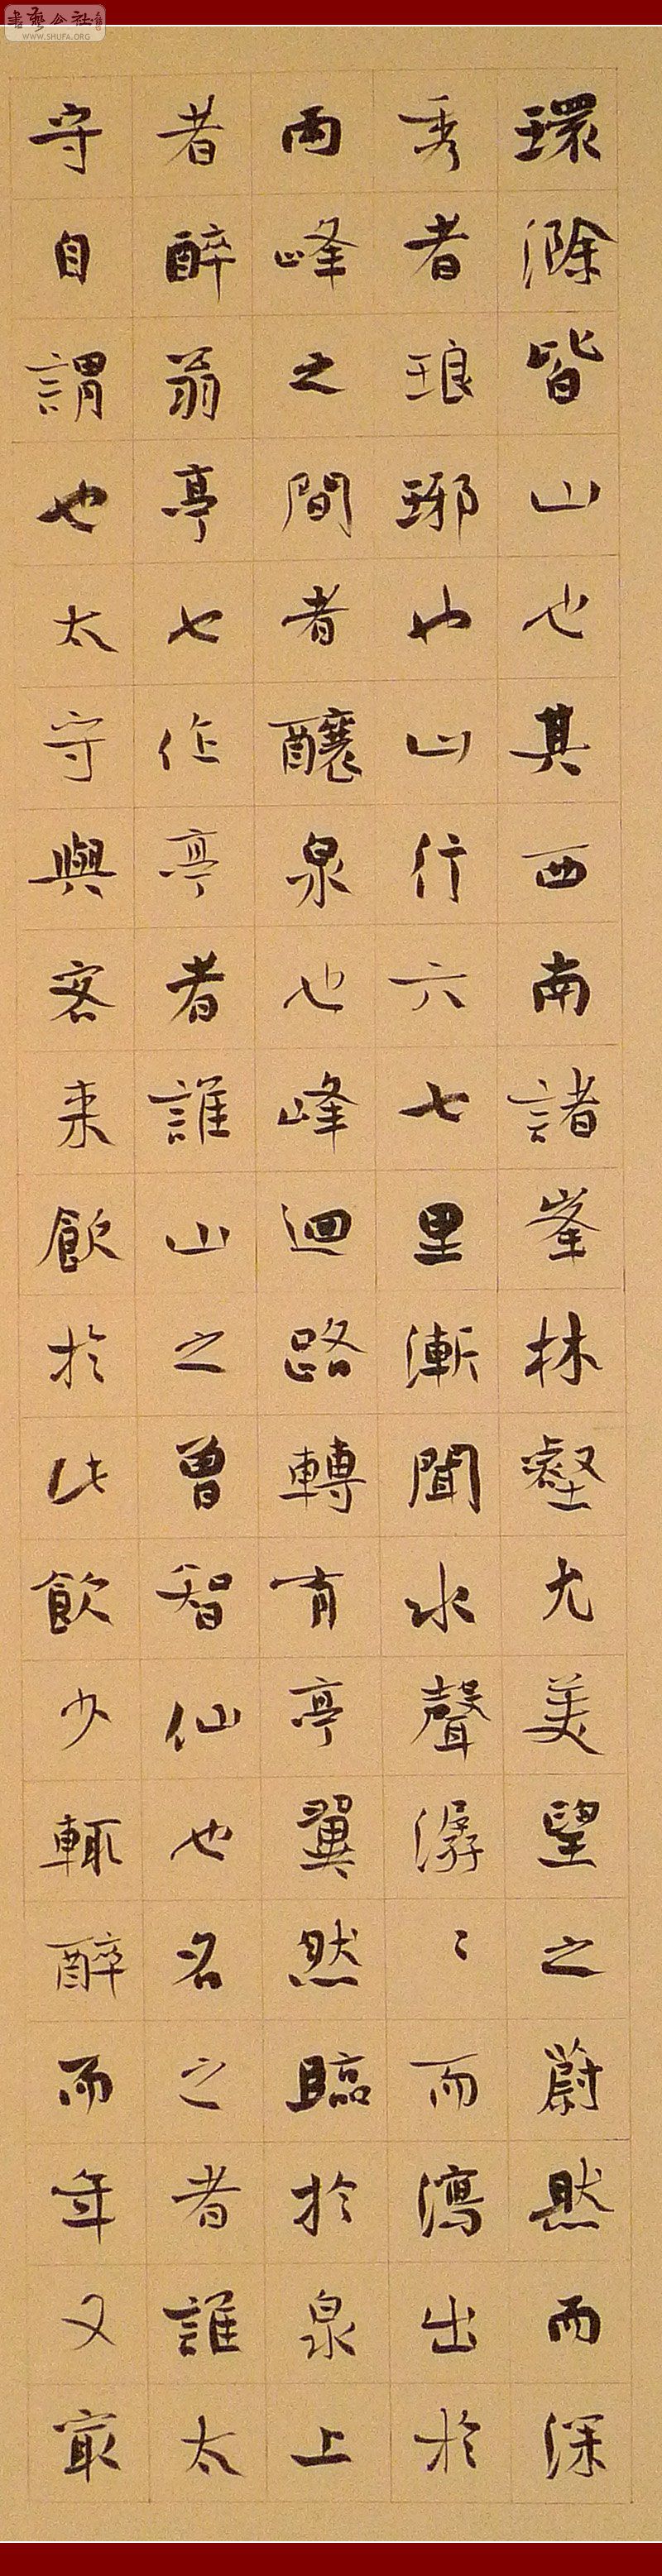 書藝公社
WWW.SHUFA.ORG
環滁皆山也其西南諸峯林壑尤美望之蔚然而深
秀者琅琊也山行六七里漸聞水聲潺〻而瀉出於
兩峰之間者釀泉也峰迴路轉有亭翼然臨於泉上
者醉翁亭也作亭者誰山之曽智仙也名之者誰太
守自謂也太守與客来飲於此飲少輒醉而年又㝡